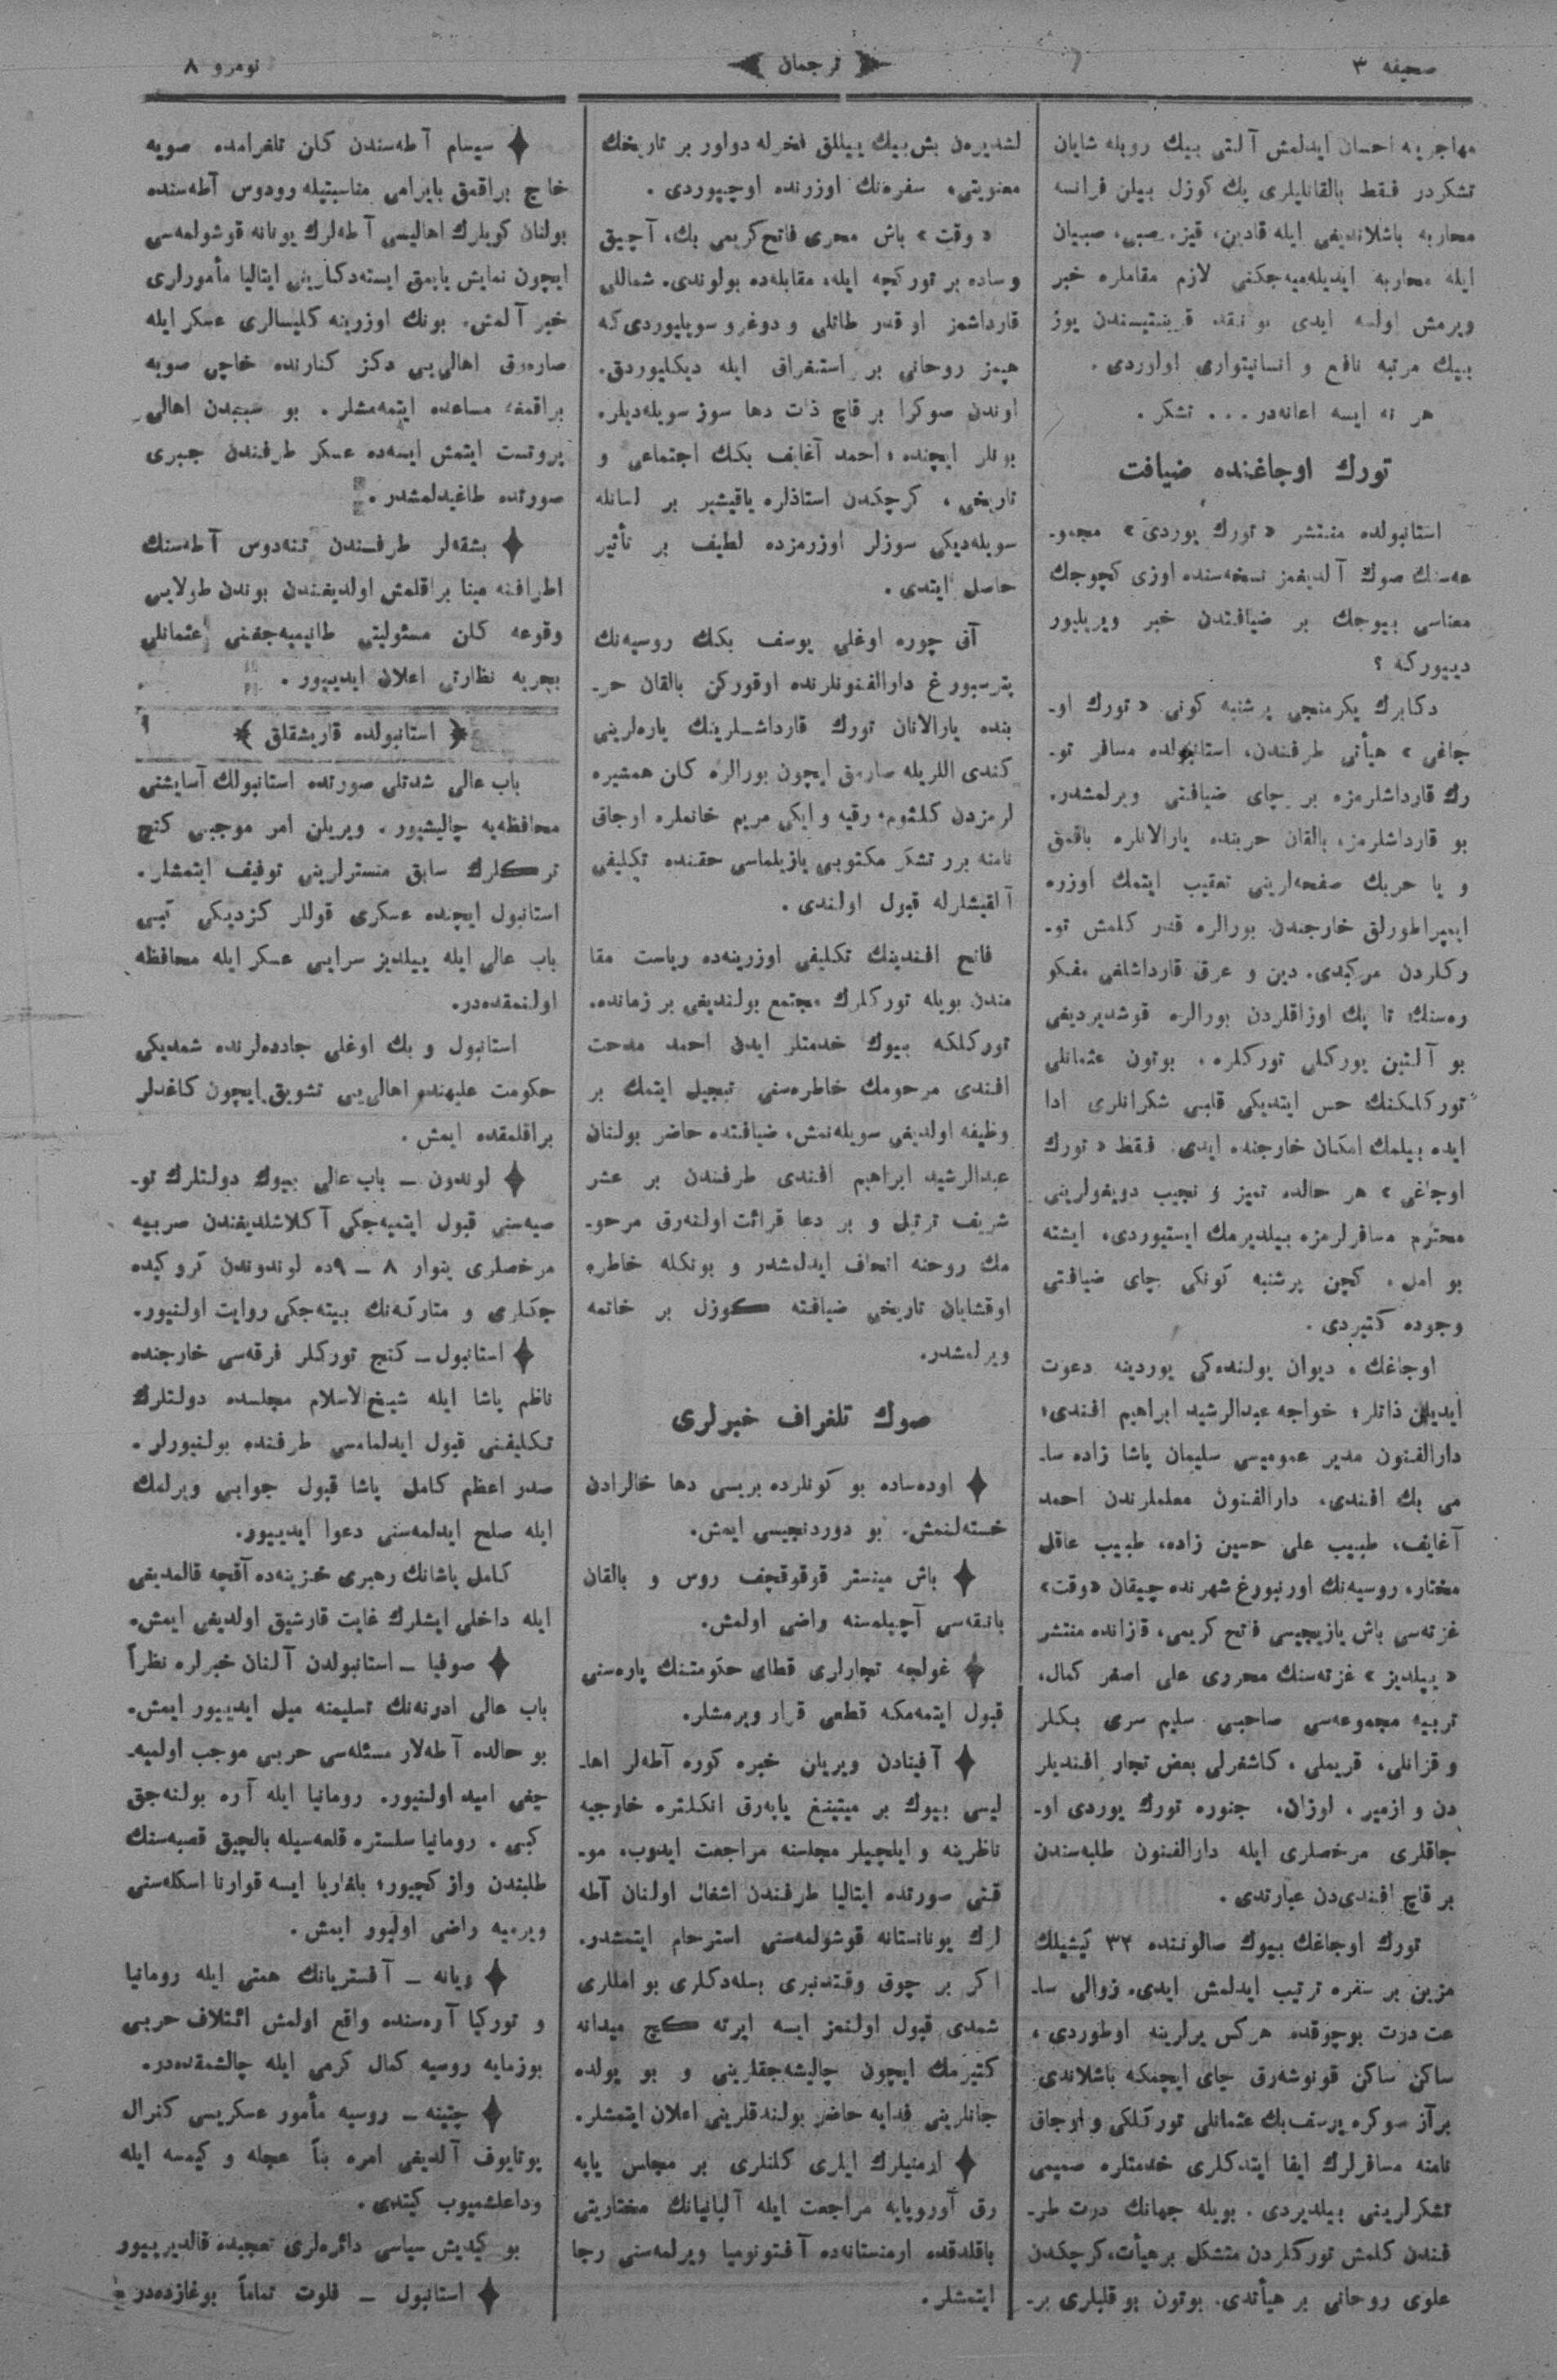 صحیفه ۳
ترجمان
نومرو ۸
مهاجرینه احسان ایدلمش آلتی بیك روبله شایان
تشكردر فقط بالقانلیلری پك كوزل بیلن فرانسه
محاربه باشلاندیغی ایله قادین، قیز، صبی، صبیان
ایله محاربه ایدیله‌میه‌جكنی لازم مقاملره خبر
ویرمش اولسه ایدی بو نقد قرینتیسندن یوز
بیك مرتبه نافع و انسانیتواری اولوردی.
هر نه ایسه اعانه‌در . . . تشكر .
تورك اوجاغنده ضیافت
استانبولده منتشر « تورك یوردی » مجمو-
عه‌سنك صوك آلدیغمز نسخه‌سنده اوزی كچوجك
معناسی بیوجك بر ضیافتدن خبر ویریلیور
دییوركه ؟
دكابرك یكرمنجی پرشنبه كونی « تورك او-
جاغی » هیأتی طرفندن، استانبولده مسافر تو-
رك قارداشلرمزه بر چای ضیافتی ویرلمشدر.
بو قارداشلرمز، بالقان حربنده یارالانلره باقمق
و یا حربك صفحه‌لرینی تعقیب ایتمك اوزره
ایمپراطورلق خارجندن بورالره قدر كلمش تو-
ركلردن مركبدی. دین و عرق قارداشلغی مفكو
ره‌سنك تا پك اوزاقلردن بورالره قوشدیردیغی
بو آلتین یوركلی توركلره، بوتون عثمانلی
توركلكنك حس ایتدیكی قلبی شكرانلری ادا
ایده بیلمك امكان خارجنده ایدی. فقط « تورك
اوجاغی » هر حالده تمیز و نجیب دویغولرینی
محترم مسافرلرمزه بیلدیرمك ایستیوردی، ایشته
بو امل، كچن پرشنبه كونكی چای ضیافتی
وجوده كتیردی .
اوجاغك ، دیوان یولنده‌كی یوردینه دعوت
ایدیلن ذاتلر ؛ خواجه عبدالرشید ابراهیم افندی؛
دارالفنون مدیر عمومیسی سلیمان پاشا زاده سا-
می بك افندی، دارالفنون معلملرندن احمد
آغایف، طبیب علی حسین زاده، طبیب عاقل
مختار، روسیه‌نك اورنبورغ شهرنده چیقان «وقت»
غزته‌سی باش یازیجیسی فاتح كریمی، قازانده منتشر
« ییلدیز » غزته‌سنك محرری علی اصغر كمال،
تربیه مجموعه‌سی صاحبی سلیم سری بكلر
و قزانلی، قریملی ، كاشغرلی بعض تجار افندیلر
دن و ازمیر ، لوزان، جنوره تورك یوردی او-
جاقلری مرخصلری ایله دارالفنون طلبه‌سندن
بر قاچ افندی‌دن عبارتدی .
تورك اوجاغك بیوك سالوننده ۳۴ كیشیلك
مزین بر سفره ترتیب ایدلمش ایدی. زوالی سا-
عت درت بوچوقده هركس یرلرینه اوطوردی ،
ساكن ساكن قونوشه‌رق چای ایچمكه باشلاندی
برآز صوكره یوسف بك عثمانلی توركلكی و اوجاق
نامنه مسافرلرك ایفا ایتدكلری خدمتلره صمیمی
تشكرلرینی بیلدیردی . بویله جهانك درت طر-
فندن كلمش توركلردن متشكل بر هیأت، كرچكدن
علوی روحانی بر هیأتدی. بوتون بو قلبلری بر-
لشدیره‌ن بش بیك ییللق فخرله دواور بر تاریخك
معنویتی، سفره‌نك اوزرنده اوچیوردی .
« وقت » باش محرری فاتح كریمی بك، آچیق
و ساده بر توركچه ایله، مقابله‌ده بولوندی. شماللی
قارداشمز او قدر طاتلی و دوغرو سویلیوردی كه
هپمز روحانی بر استغراق ایله دیكلیوردق.
اوندن صوكرا بر قاچ ذات دها سوز سویله‌دیلر.
بونلر ایچنده ؛ احمد آغایف بكك اجتماعی و
تاریخی ، كرچكدن استاذلره یاقیشیر بر لسانله
سویله‌دیكی سوزلر اوزرمزده لطیف بر تأثیر
حاصل ایتدی .
آق چوره اوغلی یوسف بكك روسیه‌نك
پترسبورغ دارالفنونلرنده اوقوركن بالقان حر-
بنده یارالانان تورك قارداشلرینك یاره‌لرینی
كندی اللریله صارمق ایچون بورالره كلن همشیره
لرمزدن كلثوم، رقیه و ایكی مریم خانملره اوجاق
نامنه برر تشكر مكتوبی یازیلماسی حقنده تكلیفی
آلقیشلرله قبول اولندی .
فاتح افندینك تكلیفی اوزرینه‌ده ریاست مقا
مندن بویله توركلرك مجتمع بولندیغی بر زمانده،
توركلكه بیوك خدمتلر ایدن احمد مدحت
افندی مرحومك خاطره‌سنی تبجیل ایتمك بر
وظیفه اولدیغی سویله‌نمش، ضیافتده حاضر بولنان
عبدالرشید ابراهیم افندی طرفندن بر عشر
شریف ترتیل و بر دعا قرائت اولنه‌رق مرحو-
مك روحنه اتحاف ایدلمشدر و بونكله خاطره
اوقشایان تاریخی ضیافته كوزل بر خاتمه
ویرلمشدر.
صوك تلغراف خبرلری
✦ اوده‌ساده بو كونلرده بریسی دها خالرادن
خسته‌لنمش. بو دوردنجیسی ایمش.
✦ باش مینستر قوقوقچف روس و بالقان
بانقه‌سی آچیلمسنه راضی اولمش.
✦ غولجه تجارلری قطای حكومتنك پاره‌سنی
قبول ایتمه‌مكه قطعی قرار ویرمشلر.
✦ آفینادن ویریلن خبره كوره آطه‌لر اها-
لیسی بیوك بر میتینغ یاپه‌رق انكلتره خارجیه
ناظرینه و ایلچیلر مجلسنه مراجعت ایدوب، مو-
قتی صورتده ایتالیا طرفندن اشغال اولنان آطه
لرك یونانستانه قوشولمه‌سنی استرحام ایتمشدر.
اكر بر چوق وقتدنبری بسله‌دكلری بو املاری
شمدی قبول اولنمز ایسه ایرته كچ میدانه
كتیرمك ایچون چالیشه‌جقلرینی و بو یولده
جانلرینی فدایه حاضر بولندقلرینی اعلان ایتمشلر.
✦ ارمنیلرك ایلری كلنلری بر مجلس یاپه
رق آوروپایه مراجعت ایله آلبانیانك مختاریتی
باقلدقده ارمنستانه‌ده آفتونومیا ویرلمه‌سنی رجا
ایتمشلر .
✦ سیسام آطه‌سندن كلن تلغرامده صویه
خاچ براقمق بایرامی مناسبتیله رودوس آطه‌سنده
بولنان كویلرك اهالیسی آطه‌لرك یونانه قوشولمه‌سی
ایچون نمایش یاپمق ایسته‌دكلرینی ایتالیا مأمورلری
خبر آلمش. بونك اوزرینه كلیسالری عسكر ایله
صاره‌رق اهالی‌یی دكز كنارنده خاچی صویه
براقمغه مساعده ایتمه‌مشلر. بو سببدن اهالی
پروتست ایتمش ایسه‌ده عسكر طرفندن جبری
صورتده طاغیدلمشدر .
✦ بشقه‌لر طرفندن تنه‌دوس آطه‌سنك
اطرافنه مینا براقلمش اولدیغندن بوندن طولایی
وقوعه كلن مسئولیتی طانیمیه‌جغنی عثمانلی
بحریه نظارتی اعلان ایدییور .
﴿ استانبولده قاریشقلق ﴾
باب عالی شدتلی صورتده استانبولك آسایشنی
محافظه‌یه چالیشیور. ویریلن امر موجبی كنج
تركلرك سابق منسترلرینی توقیف ایتمشلر.
استانبول ایچنده عسكری قوللر كزدیكی كبی
باب عالی ایله ییلدیز سرایی عسكر ایله محافظه
اولنمقده‌در.
استانبول و بك اوغلی جادده‌لرنده شمدیكی
حكومت علیهنده اهالی‌یی تشویق ایچون كاغدلر
براقلمقده ایمش .
✦ لوندون ــ باب عالی بیوك دولتلرك تو-
صیه‌سنی قبول ایتمیه‌جكی آكلاشلدیغندن صربیه
مرخصلری ینوار ۸ ــ ۹ده لوندوندن كروكیده
جكلری و متاركه‌نك بیته‌جكی روایت اولنیور.
✦ استانبول ــ كنج توركلر فرقه‌سی خارجنده
ناظم پاشا ایله شیخ‌الاسلام مجلسده دولتلرك
تكلیفنی قبول ایدلمامسی طرفنده بولنیورلر.
صدر اعظم كامل پاشا قبول جوابی ویرلمك
ایله صلح ایدلمه‌سنی دعوا ایدییور.
كامل پاشانك رهبری خزینه‌ده آقچه قالمدیغی
ایله داخلی ایشلرك غایت قارشیق اولدیغی ایمش.
✦ صوفیا ــ استانبولدن آلنان خبرلره نظراً
باب عالی ادرنه‌نك تسلیمنه میل ایدییور ایمش.
بو حالده آطه‌لار مسئله‌سی حربی موجب اولمیه-
جغی امید اولنیور. رومانیا ایله آره بولنه‌جق
كبی . رومانیا سلستره قلعه‌سیله بالچیق قصبه‌سنك
طلبندن واز كچیور؛ بلغاریا ایسه قوارنا اسكله‌سنی
ویرمیه راضی اولیور ایمش .
✦ ویانه ــ آفستریانك همتی ایله رومانیا
و توركیا آره‌سنده واقع اولمش ائتلاف حربی
بوزمایه روسیه كمال كرمی ایله چالشمقده‌در.
✦ چتینه ــ روسیه مأمور عسكریسی كنرال
پوتاپوف آلدیغی امره بناً عجله و كیمسه ایله
وداعلشمیوب كیتدی .
بو كیدیش سیاسی دائره‌لری تعجبده قالدیرییور
✦ استانبول ــ فلوت تماماً بوغازده‌در